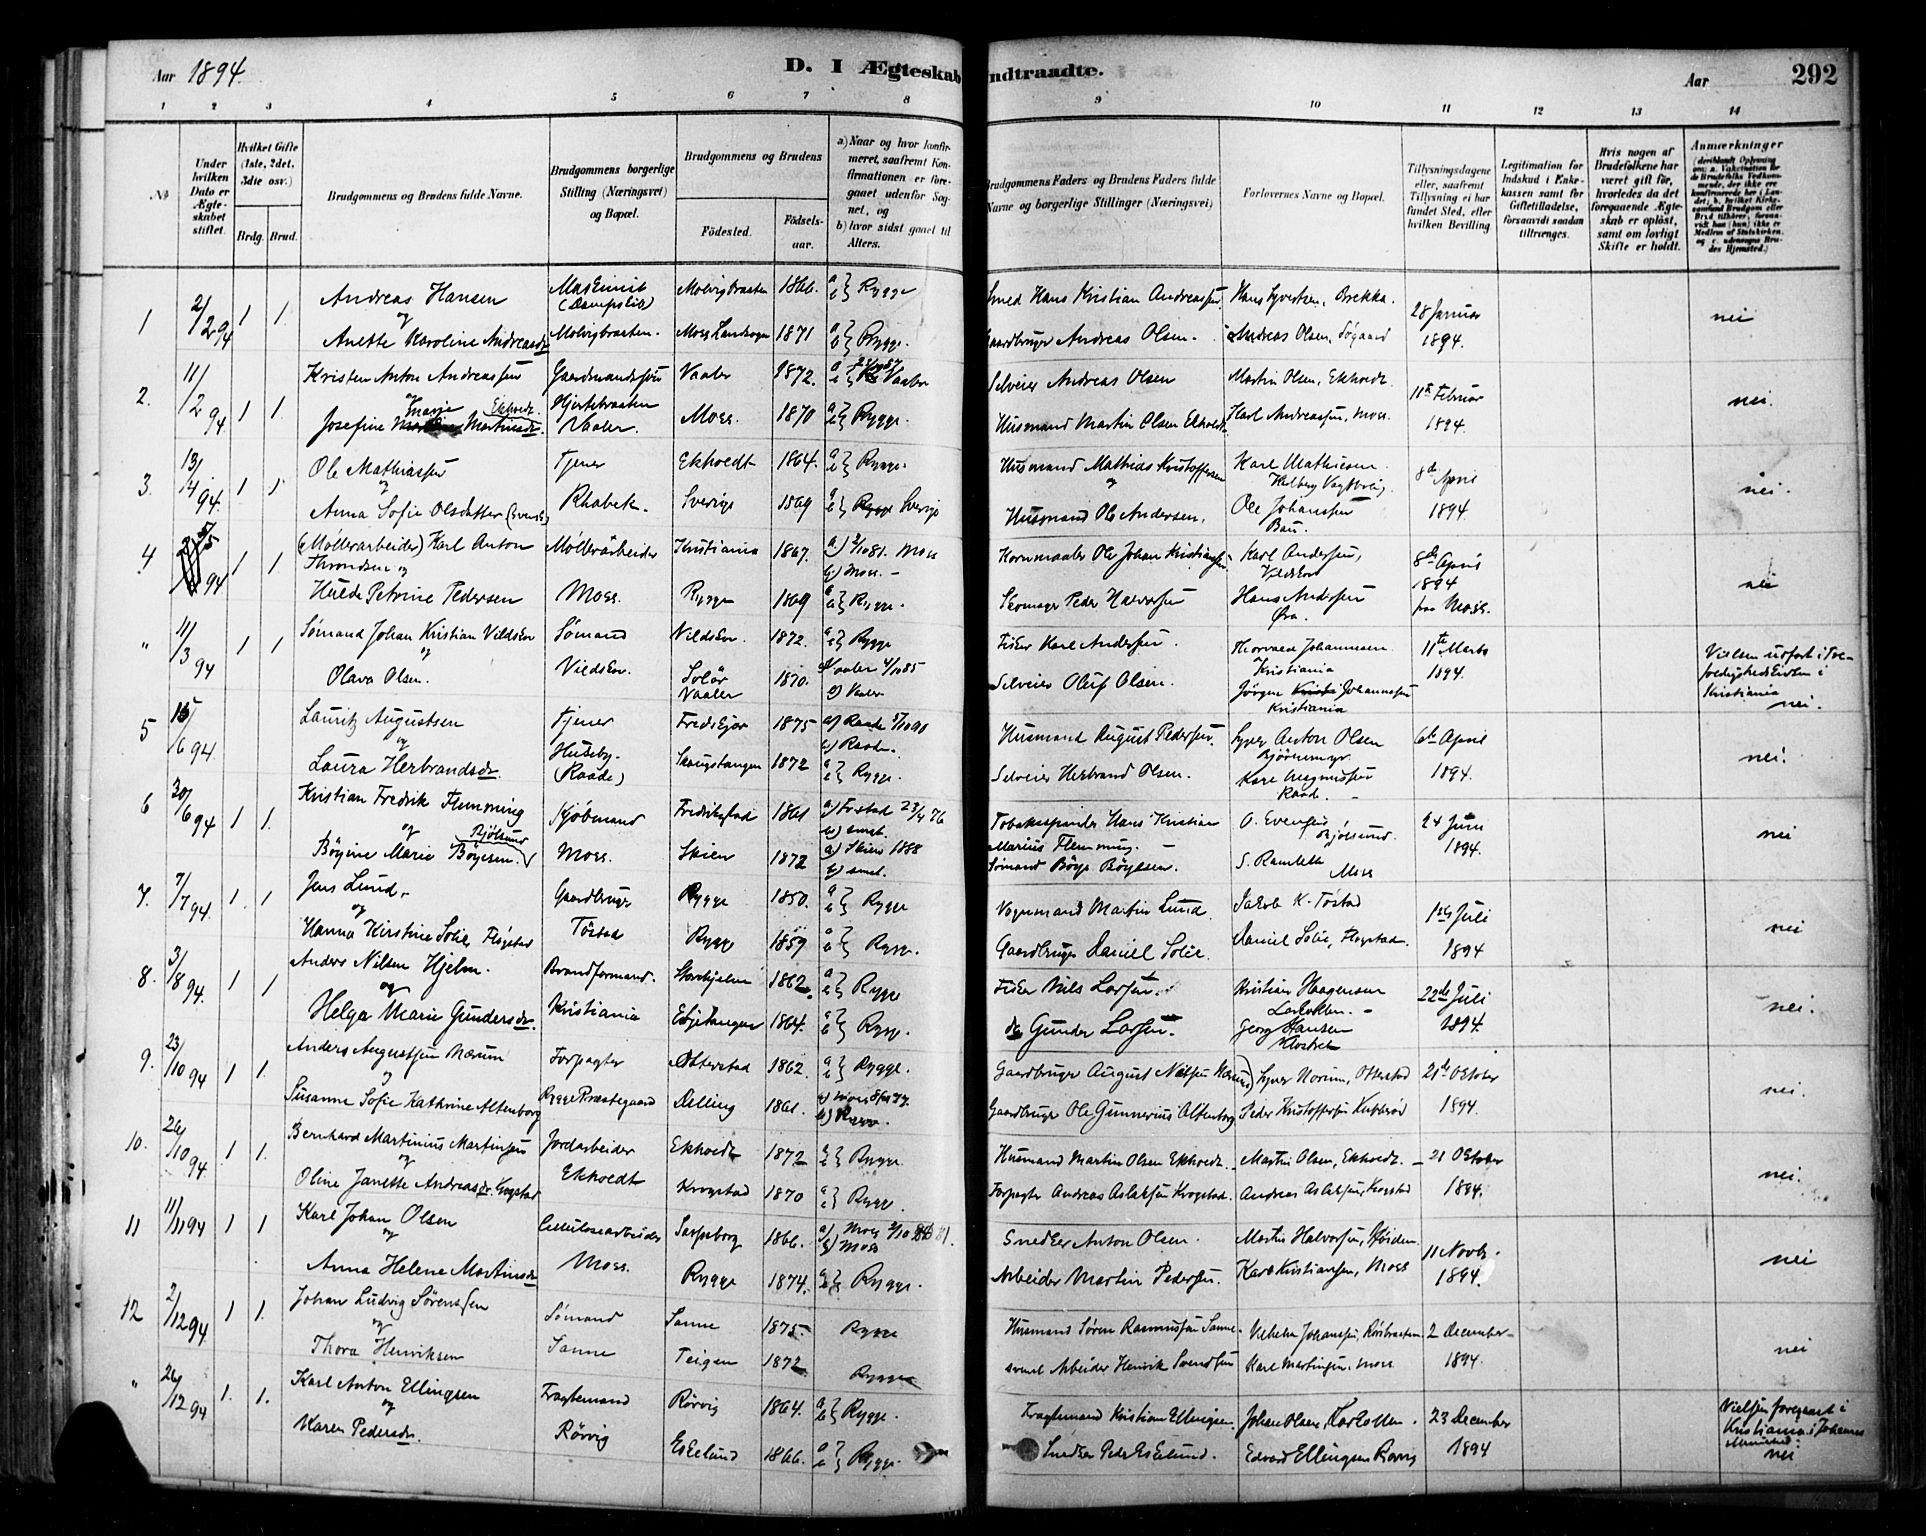 Aar 1894.
D. I Ægteskab
indtraadte.
Aar
292
1 2 3 4 5 6 7 8 9 10 11 12 13 14
No
Under hvilken Dato er Ægteskabet stiftet.
Hvilket Gifte (1ste, 2det, 3die osv.)
Brdg. Brud.
Brudgommens og Brudens fulde Navne.
Brudgommens borgerlige Stilling (Næringsvei) og Bopæl.
Brudgommens og Brudens
Fødested.
Fødselsaar.
a) Naar og hvor konfirmeret, saafremt Konfirmationen er foregaaet udenfor Sognet, og
b) hvor sidst gaaet til Alters.
Brudgommens Faders og Brudens Faders fulde Navne og borgerlige Stillinger (Næringsvei)
Forlovernes Navne og Bopæl.
Tillysningsdagene eller, saafremt Tillysning ei har fundet Sted, efter hvilken Bevilling
Legitimation for Indskud i Enkekassen samt for Giftetilladelse, forsaavidt saadan tiltrænges.
Hvis nogen af Brudefolkene har været gift før, hvorledes da det foregaaende Ægteskab er opløst, samt om lovligt Skifte er holdt.
Anmærkninger
1 2/2 94 1 1. Andreas Hansen Maskinist (Dampskib) Molvigbraaten 1866. a b } Rygge Smed Hans Kristian Andreassen Hans Syvertsen, Brekka. 28 Januar 1894. nei
og
Anette Karoline Andreasdr Molvigbraaten. Moss Landsogn 1871 a b } Rygge. Gaardbruger Andreas Olsen. Andreas Olsen, Søgaard
2. 11/2 94 1 1. Kristen Anton Andreassen Gaardmandssøn Vaaler 1872. Vaaler Selveier Andreas Olsen Martin Olsen, Ekholdt 11te Februar 1894. nei.
og
Josefine Marie Martinsdr. Ekholdt. Vaaler. Moss. 1870 a b } Rygge. Husmand Martin Olsen Ekholdt Karl Andreassen, Moss.
3. 13/4 94. 1 1 Ole Mathiassen Tjener Ekholdt 1864. a b } Rygge. Husmand Mathias Kristoffersen Karl Mathiesen 8de April 1894. nei.
og
Anna Sofie Olsdatter (Svensk) Rhabek. Sverige 1869 a b } Rygge Sverige Husmand Ole Andersen. Ole Johanssen Bau.
4 94 1 1. (Møllerarbeider) Karl Anton Throndsen og Møllerarbeider Kristiania 1867. a) 2/10 81. Moss b) Moss. Kornmaaler Ole Johan Kristiansen Karl Andersen, Vildskov 8de April 1894 fra Moss. nei
Hulda Petrine Pedersen Moss. Rygge 1869 a b } Rygge. Skomager Peder Halvorsen Hans Andersen Øra.
" 11/3 94 1 1. Sømand Johan Kristian Vildskov Sømand Vildskov. 1872. a b } Rygge Fisker Karl Andersen Thorvald Johannesen Kristiania 11te Marts 1894. Vielsen udført i Trefoldighedskirken i Kristiania nei.
og
Olava Olsen. Vildskov. Solør Vaaler 1870. a) Vaaler 4/10 85 b) Vaaler Selveier Oluf Olsen. Jörgen Johannesen Kristiania
5 15/6 94 Lauritz Augustsen Tjener Fredskjær 1875 a) Raade b) Raade. Husmand August Pedersen. Syver Anton Olsen Bjørnmyr 6te April 1894. nei.
og
Laura Herbrandsdr. Huseby. (Raade) Skaugstangen 1872 a b } Rygge. Selveier Herbrand Olsen. Karl Magnussen Raade.
6 30/6 94 1 1. Kristian Fredrik Flemming Kjøbmand Fredrikstad 1861 a) Fr.stad 23/4 76 b) smst. Tobaksspinder Hans Kristian Marius Flemming. O. Evensen Bjølsund 24 Juni 1894. nei
og
Böyine Marie Böyesen. Bjölsund Moss. Skien 1872 a) Skien 1888 b) smst. Sømand Böye Böyesen S. Ramleth Moss
7. 7/7 94. 1 1 Jens Lund. Gaardbruger Rygge 1850. a b } Rygge Vognmand Martin Lund. Jakob K. Tøstad 1ste Juli 1894 nei
og
Hanna Kirstine Solie, Flögstad Tøstad Rygge 1859 a b } Rygge. Gaardbruger Daniel Solie. Daniel Solie, Flogstad.
8. 3/8 94. 1 1 Anders Nilsen Hjelm. Brandformand. Storhjelm 1862. a b } Rygge Fisker Nils Larsen. Kristian Haagensen Larkollen. 22de Juli 1894. nei.
og
Helga Marie Gundersdr. Kristiania Eljetangen 1864. a b } Rygge. do Gunder Larsen. Georg Hansen Klostret
9. 23/10 94 1 1. Anders Augustsen Nærum Forpagter Otterstad 1862. a b } Rygge. Gaardbruger August Nilsen Nærum Syver Norum, Otterstad 21de Oktober 1894. nei.
og
Susanne Sofie Kathrine Altenborg Rygge Præstegaard Dilling 1861. b) Rygge. Gaardbruger Ole Gunnerius Altenborg Peder Kristoffersen Kubberød
10. 26/10 94 1 1. Bernhard Martinius Martinsen Jordarbeider Ekholdt 1872 a b } Rygge. Husmand Martin Olsen Ekholdt. Martin Olsen, Ekholdt. 21 Oktober 1894. nei.
og
Oline Janette Andreasdr. Krogstad Ekholdt Krogstad 1870 a b } Rygge. Forpagter Andreas Aslaksen Krogstad. Andreas Aslaksen, Krogstad
11 11/11 94 1 1 Karl Johan Olsen Cellulosearbeider Sarpsborg 1866. a) Moss 2/10 81. b) Moss Snedker Anton Olsen. Martin Halvorsen, Høiden 11 Novbr. 1894. nei
og
Anna Helene Martinsdr Moss. Rygge 1874. a b } Rygge. Arbeider Martin Pedersen. Karl Kristiansen, Moss
12 2/12 94 1 1. Johan Ludvig Sörenssen Sømand Sanne 1875. Rygge Husmand Sören Rasmussen Sanne. Vilhelm Johanssen, Röstbraaten 2 December 1894. nei
og
Thora Henriksen Sanne Teigen 1872 Rygge Arbeider Henrik Svendsen Karl Martinsen, Moss
" 26/12 94 1. 1. Karl Anton Ellingsen Fragtemand Rörvig 1864. a b } Rygge. Fragtemand Kristian Ellingsen. Johan Olsen, Larkollen. 23 December 1894 Vielsen foregaaet i Kristiania i Johannes nei
og
Karen Pedersdr. Rörvig Eskelund 1866. a b } Rygge. Snedker Peder Eskelund. Edvard Ellingsen Rörvig